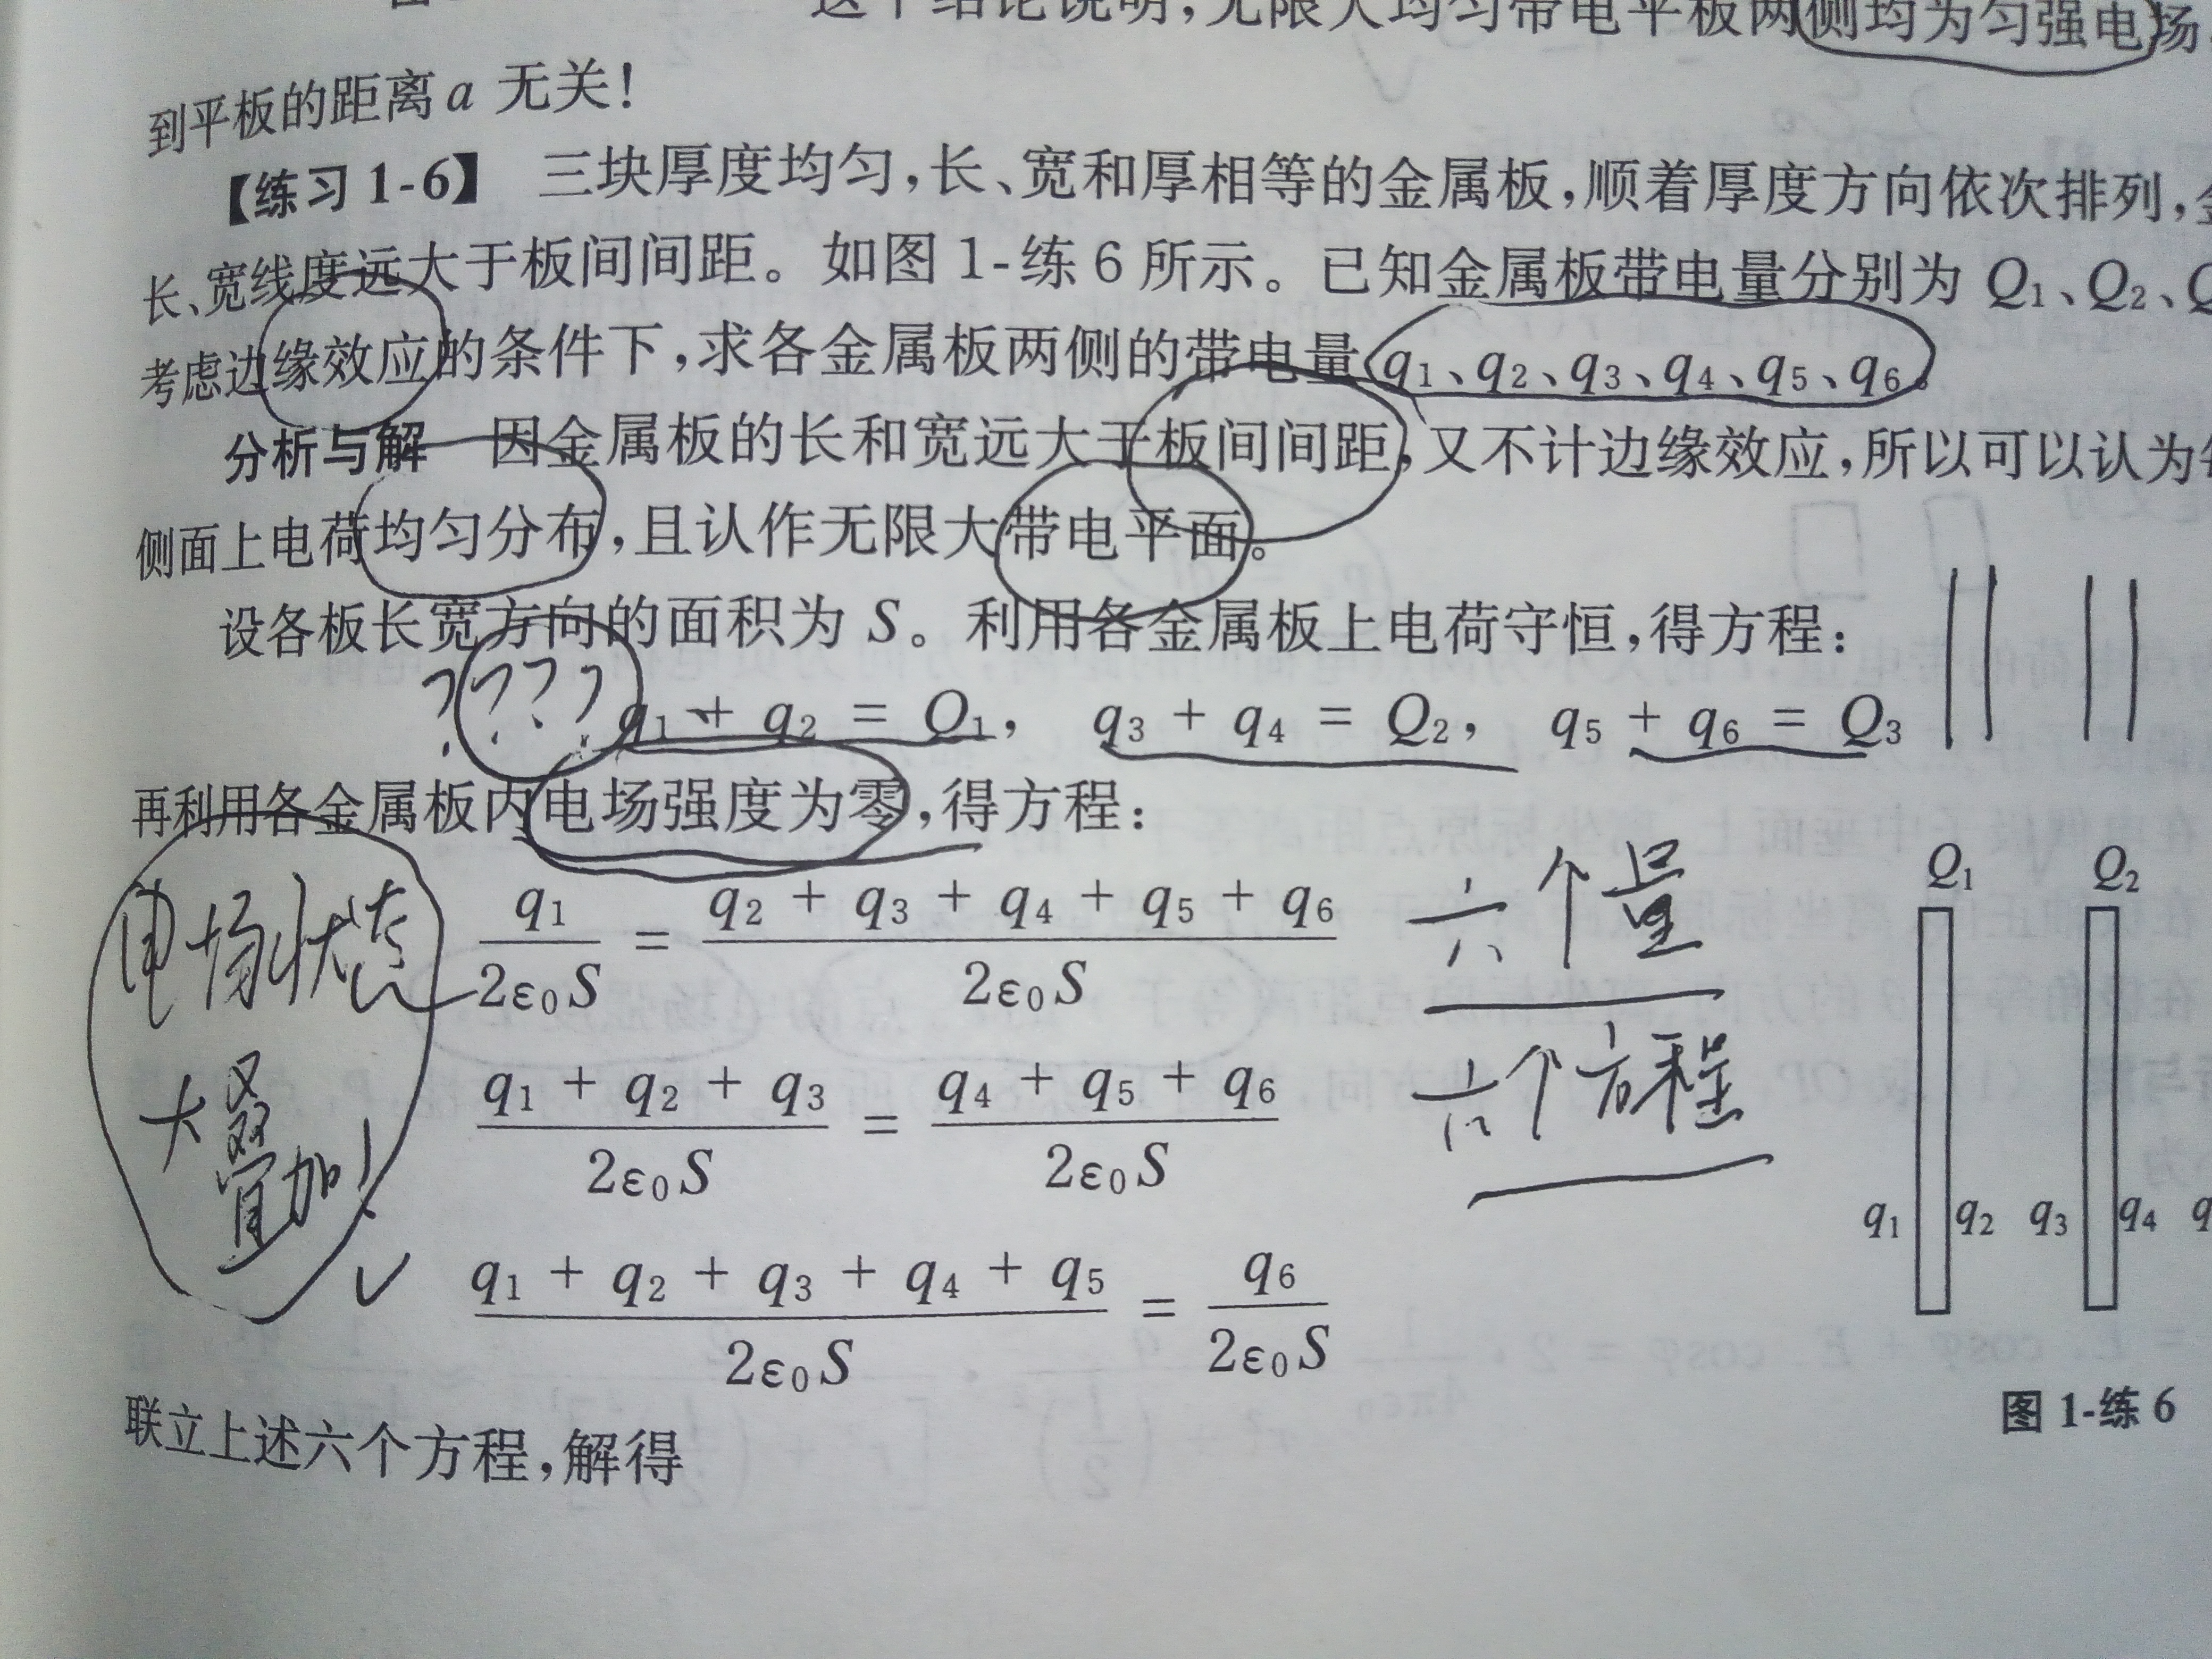 这个结论说明,无限大均匀带电平板两侧均为匀强电场
到平板的距离a 无关!
【练习1-6】 三块厚度均匀,长、宽和厚相等的金属板,顺着厚度方向依次排列,
长、宽线度远大于板间间距。如图1-练6所示。已知金属板带电量分别为 Q₁、Q₂、
考虑边缘效应的条件下,求各金属板两侧的带电量 q₁、q₂、q₃、q₄、q₅、q₆。
分析与解 因金属板的长和宽远大于板间间距,又不计边缘效应,所以可以认为
侧面上电荷均匀分布,且认作无限大带电平面。
设各板长宽方向的面积为 S。利用各金属板上电荷守恒,得方程:
????
q₁ + q₂ = Q₁, q₃ + q₄ = Q₂, q₅ + q₆ = Q₃
再利用各金属板内电场强度为零,得方程:
电场状态
大叠加!
q₁/2ε₀S = q₂ + q₃ + q₄ + q₅ + q₆/2ε₀S
六个量
q₁ + q₂ + q₃/2ε₀S = q₄ + q₅ + q₆/2ε₀S
六个方程
q₁ + q₂ + q₃ + q₄ + q₅/2ε₀S = q₆/2ε₀S
Q₁ Q₂
q₁ q₂ q₃ q₄
图 1-练 6
联立上述六个方程,解得